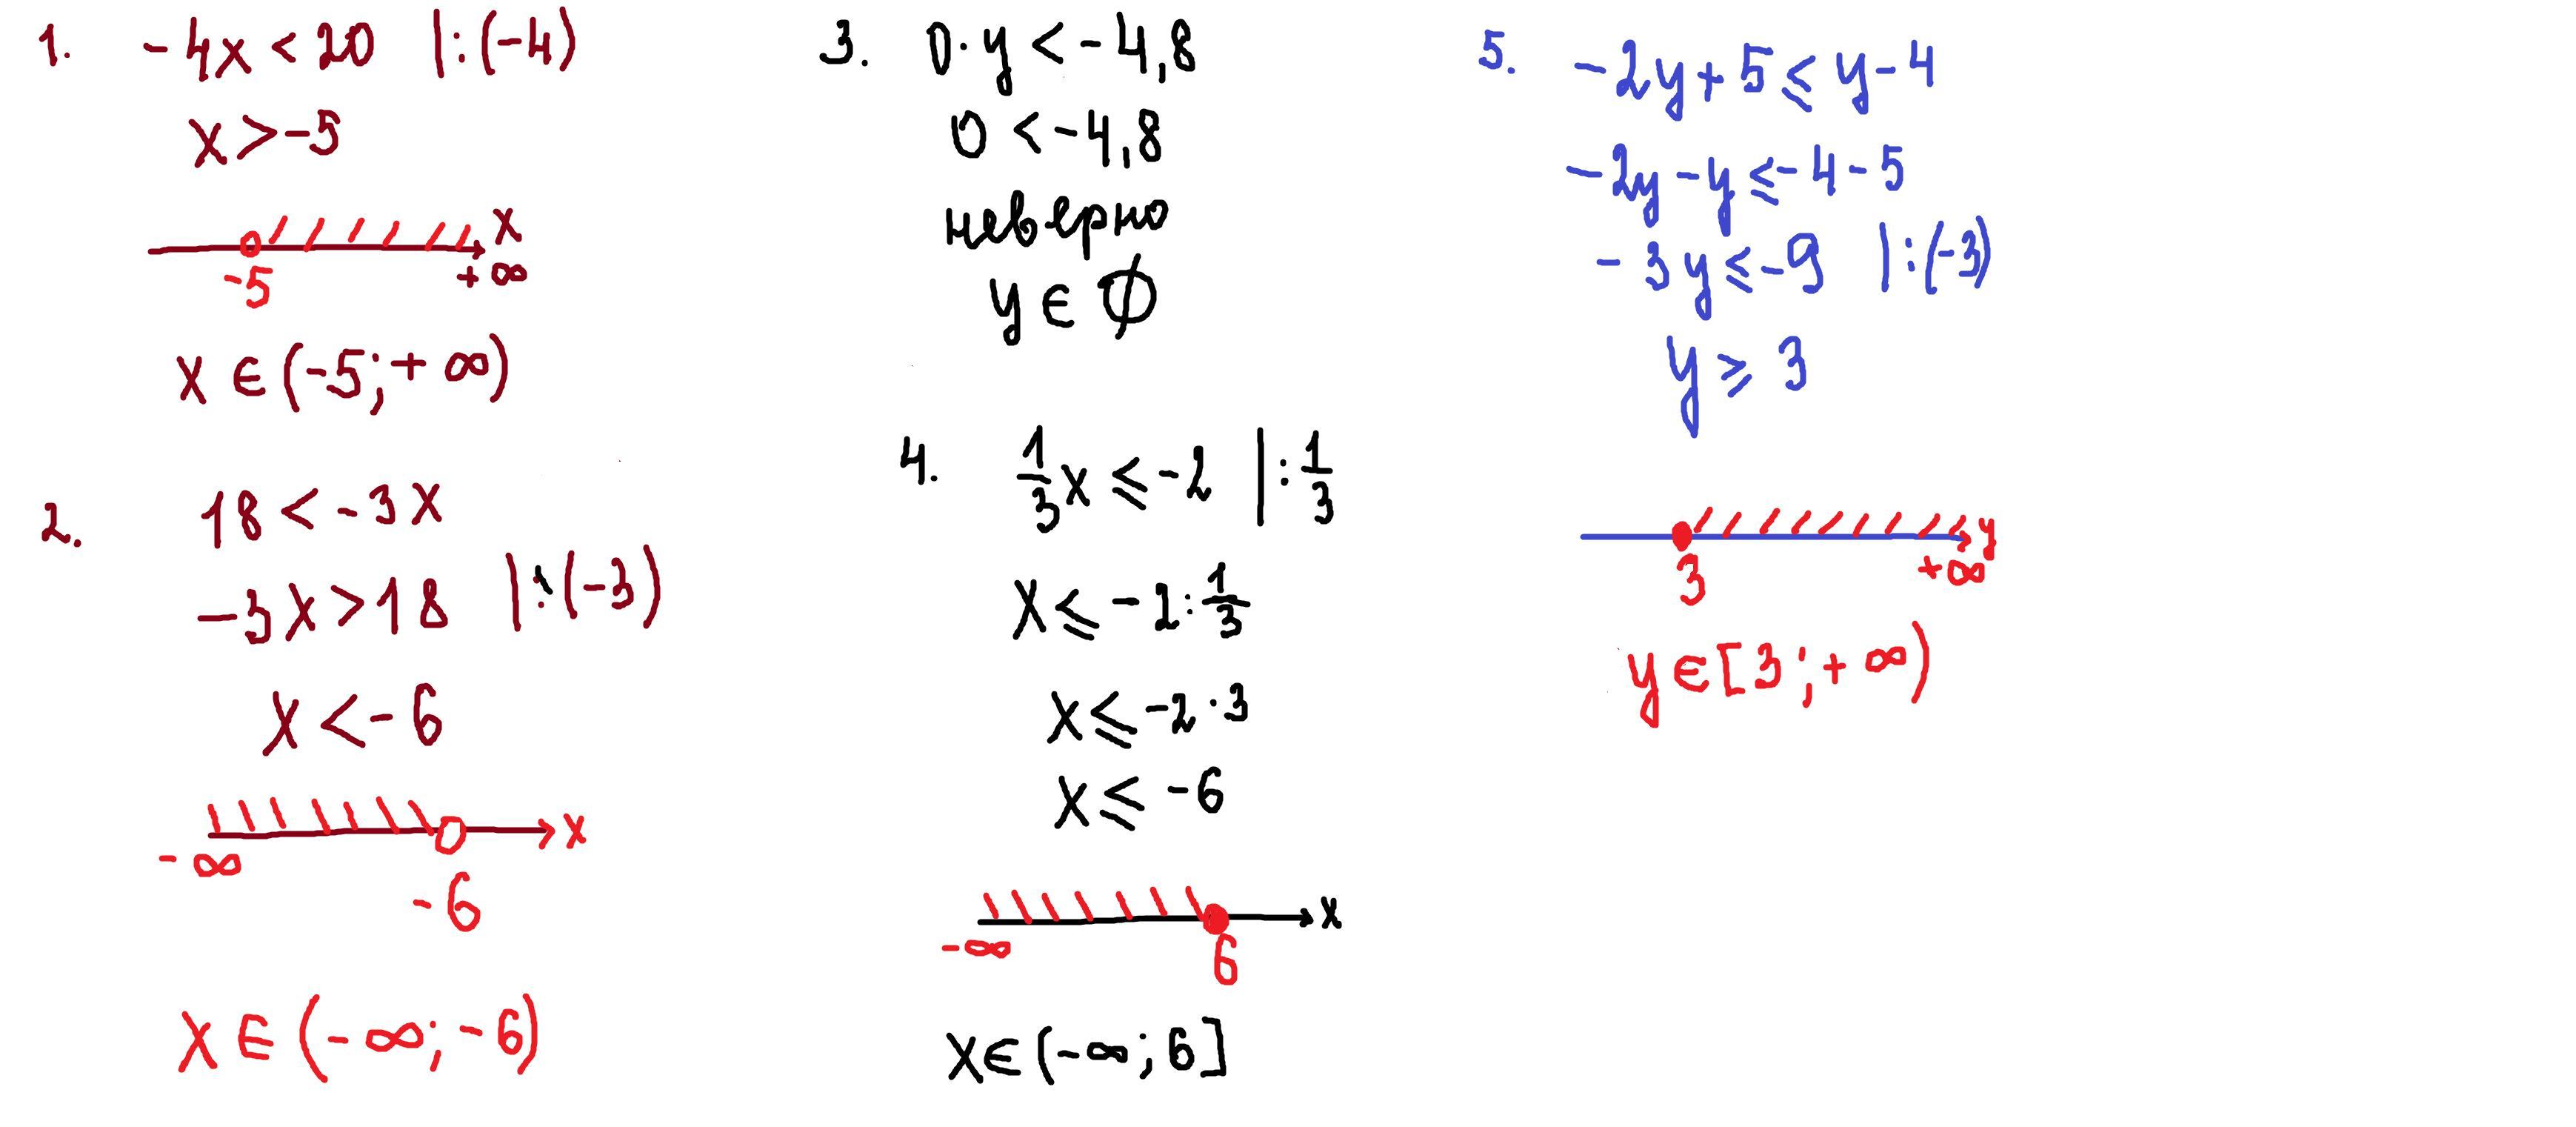 1. -4x < 20 |:(-4)
x > -5
x
-5 +∞
x ∈ (-5; +∞)
2. 18 < -3x
-3x > 18 |:(-3)
x < -6
x
-∞
-6
x ∈ (-∞; -6)
3. 0·y < -4,8
0 < -4,8
неверно
y ∈ Ø
4. 1/3 x ⩽ -2 |: 1/3
x ⩽ -2 : 1/3
x ⩽ -2 · 3
x ⩽ -6
x
-∞ 6
x ∈ (-∞; 6]
5. -2y + 5 ⩽ y - 4
-2y - y ⩽ -4 - 5
-3y ⩽ -9 |:(-3)
y ⩾ 3
y
3 +∞
y ∈ [3; +∞)